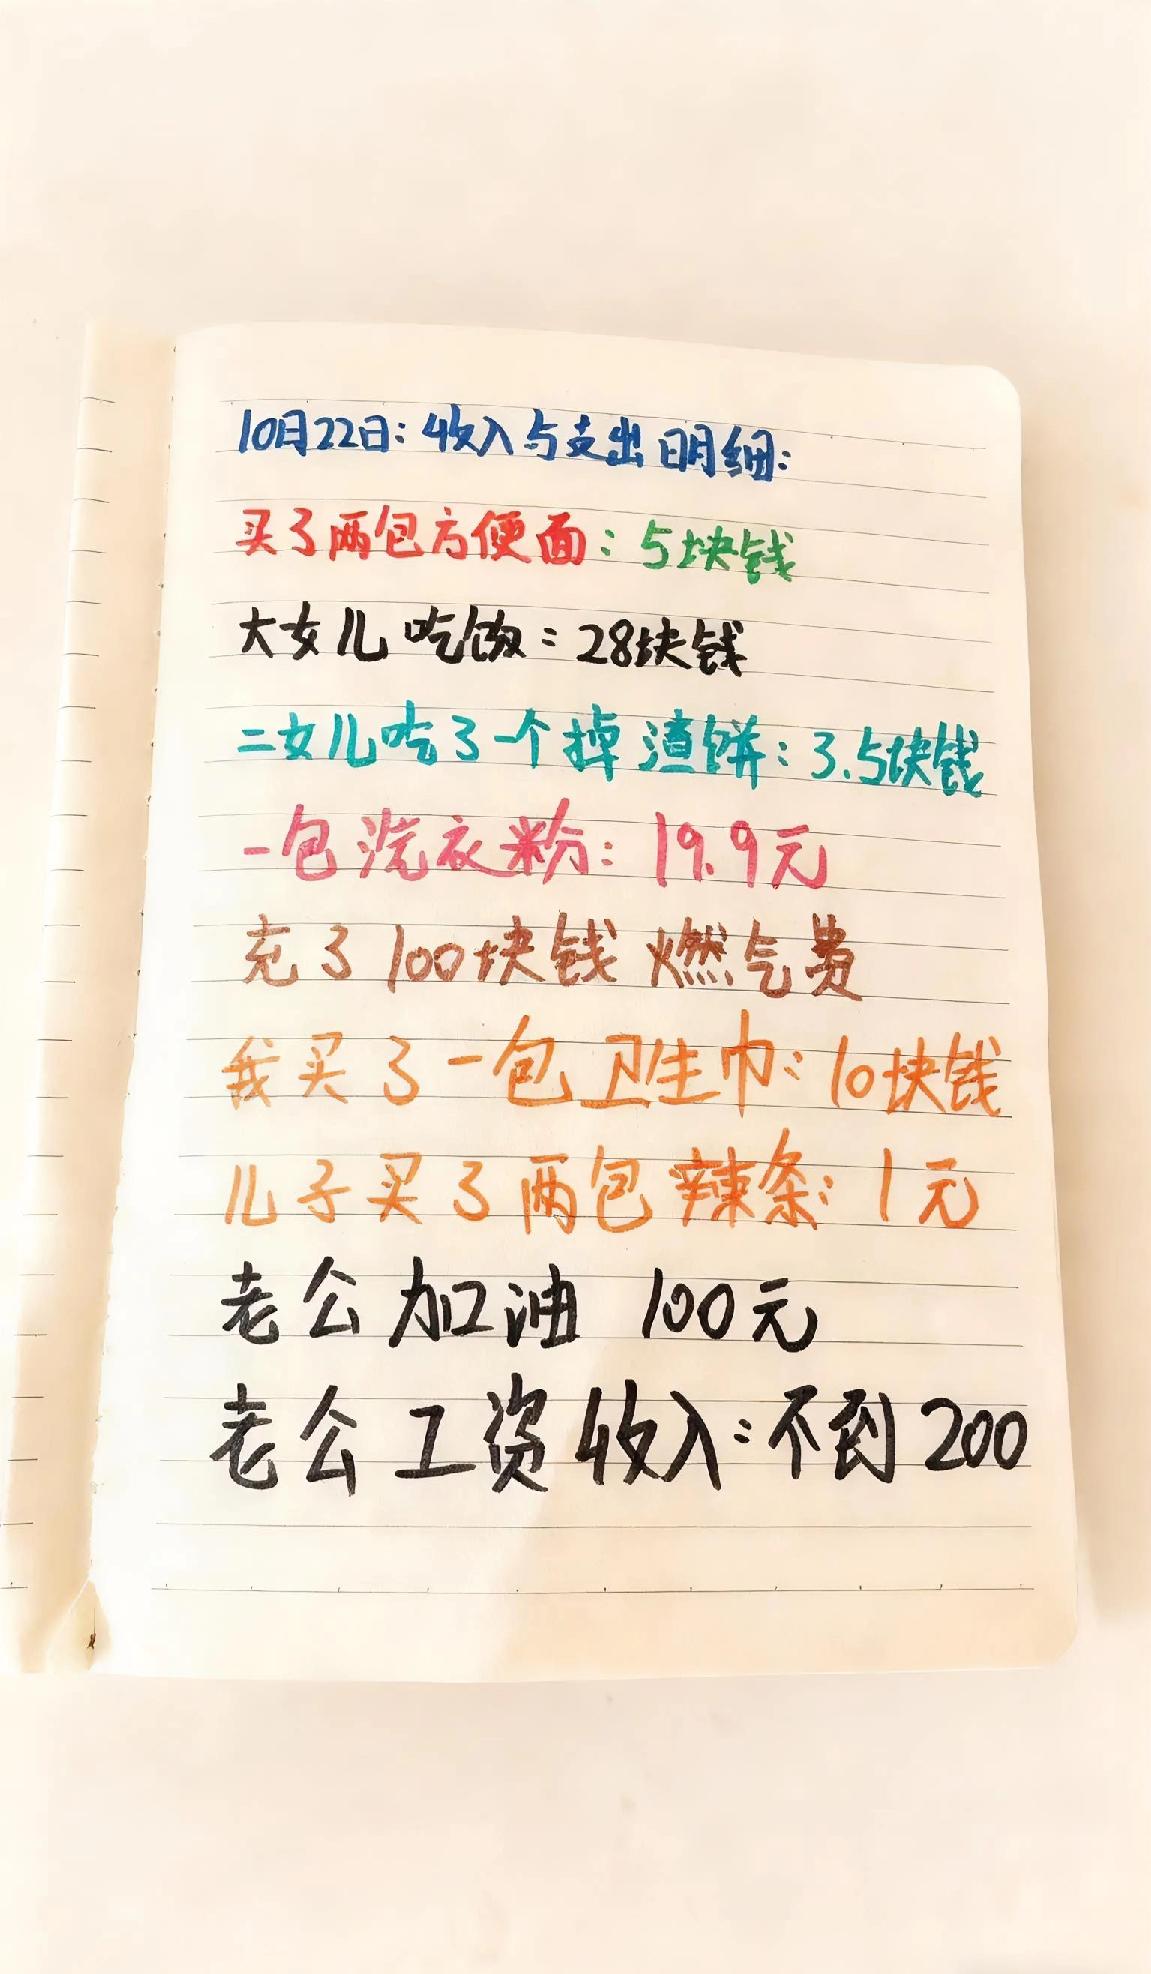 10月22日:收入与支出明细:
买了两包方便面:5块钱
大女儿吃饭:28块钱
二女儿吃了一个掉渣饼:3.5块钱
一包洗衣粉:19.9元
充了100块钱燃气费
我买了一包卫生巾:10块钱
儿子买了两包辣条:1元
老公加油 100元
老公工资收入:不到200